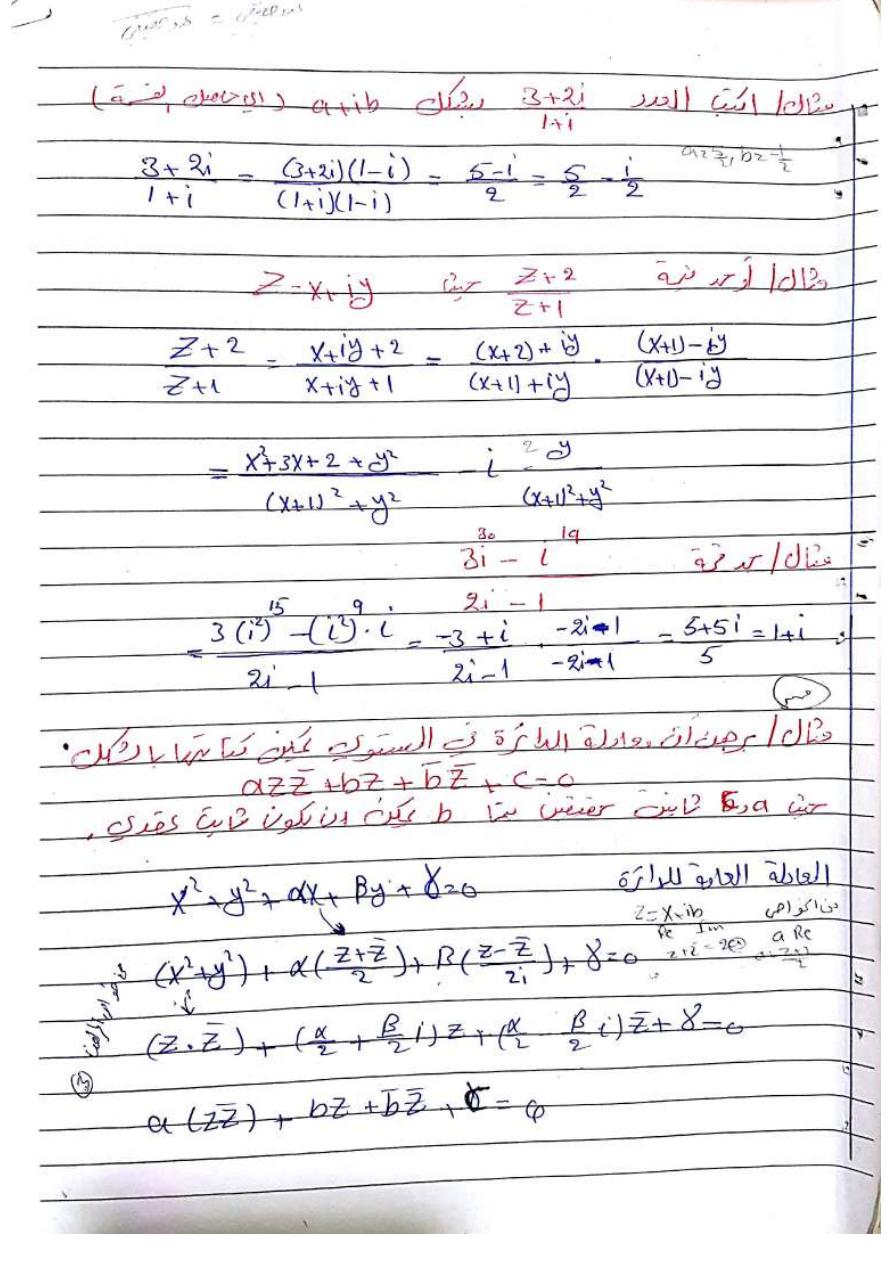 عدد حقيقي = عدد حقيقي
مثال/ اكتب العدد 3+2i / 1+i بشكل a+ib (اي حاصل قسمة)
3+2i / 1+i = (3+2i)(1-i) / (1+i)(1-i) = 5-i / 2 = 5/2 - i/2
a=5/2, b=-1/2
مثال/ أوجد قيمة z+2 / z+1 حيث z=x+iy
z+2 / z+1 = x+iy+2 / x+iy+1 = (x+2)+iy / (x+1)+iy · (x+1)-iy / (x+1)-iy
= x²+3x+2+y² / (x+1)²+y² - i y / (x+1)²+y²
مثال/ جد قيمة 3i³⁰ - i¹⁹ / 2i - 1
= 3(i²)¹⁵ - (i²)⁹·i / 2i-1 = -3+i / 2i-1 · -2i-1 / -2i-1 = 5+5i / 5 = 1+i
مثال/ برهن أن معادلة الدائرة في المستوي يمكن كتابتها بالشكل
azz̄ + bz + b̄z̄ + c = 0
حيث a و c ثابت حقيقين بينما b يمكن ان يكون ثابت عقدي.
العادلة العامة للدائرة
x² + y² + αx + βy + γ = 0
من الخواص
z=x+ib
Re Im
a Re
(x²+y²) + α(z+z̄ / 2) + β(z-z̄ / 2i) + γ = 0
(z·z̄) + (α/2 + β/2 i)z + (α/2 - β/2 i)z̄ + γ = 0
a(zz̄) + bz + b̄z̄ + γ = 0